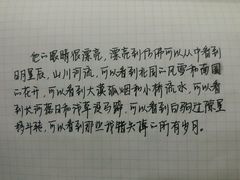 他的眼睛很漂亮，漂亮到仿佛可以从中看到
日月星辰，山川河流，可以看到北国的风雪和南国
的花开，可以看到大漠孤烟和小桥流水，可以看
到大河落日和浅草没马蹄，可以看到白驹过隙星
移斗转，可以看到那些你错失的所有岁月。